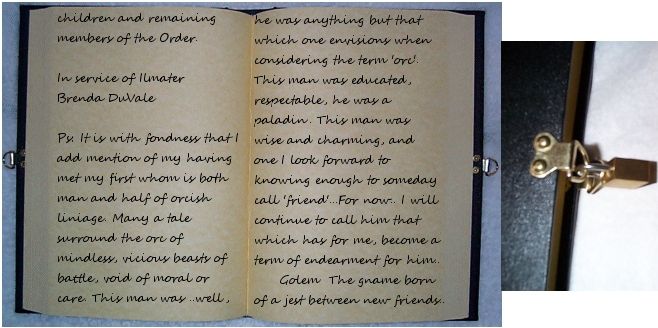 children and remaining
members of the Order.
In service of Ilmater
Brenda DuVale
Ps. It is with fondness that I
add mention of my having
met my first whom is both
man and half of orcish
liniage. Many a tale
surround the orc of
mindless, vicious beasts of
battle, void of moral or
care. This man was ..well,
he was anything but that
which one envisions when
considering the term 'orc'.
This man was educated,
respectable, he was a
paladin. This man was
wise and charming, and
one I look forward to
knowing enough to someday
call 'friend'...For now.. I will
continue to call him that
which has for me, become a
term of endearment for him..
Golem The gname born
of a jest between new friends..